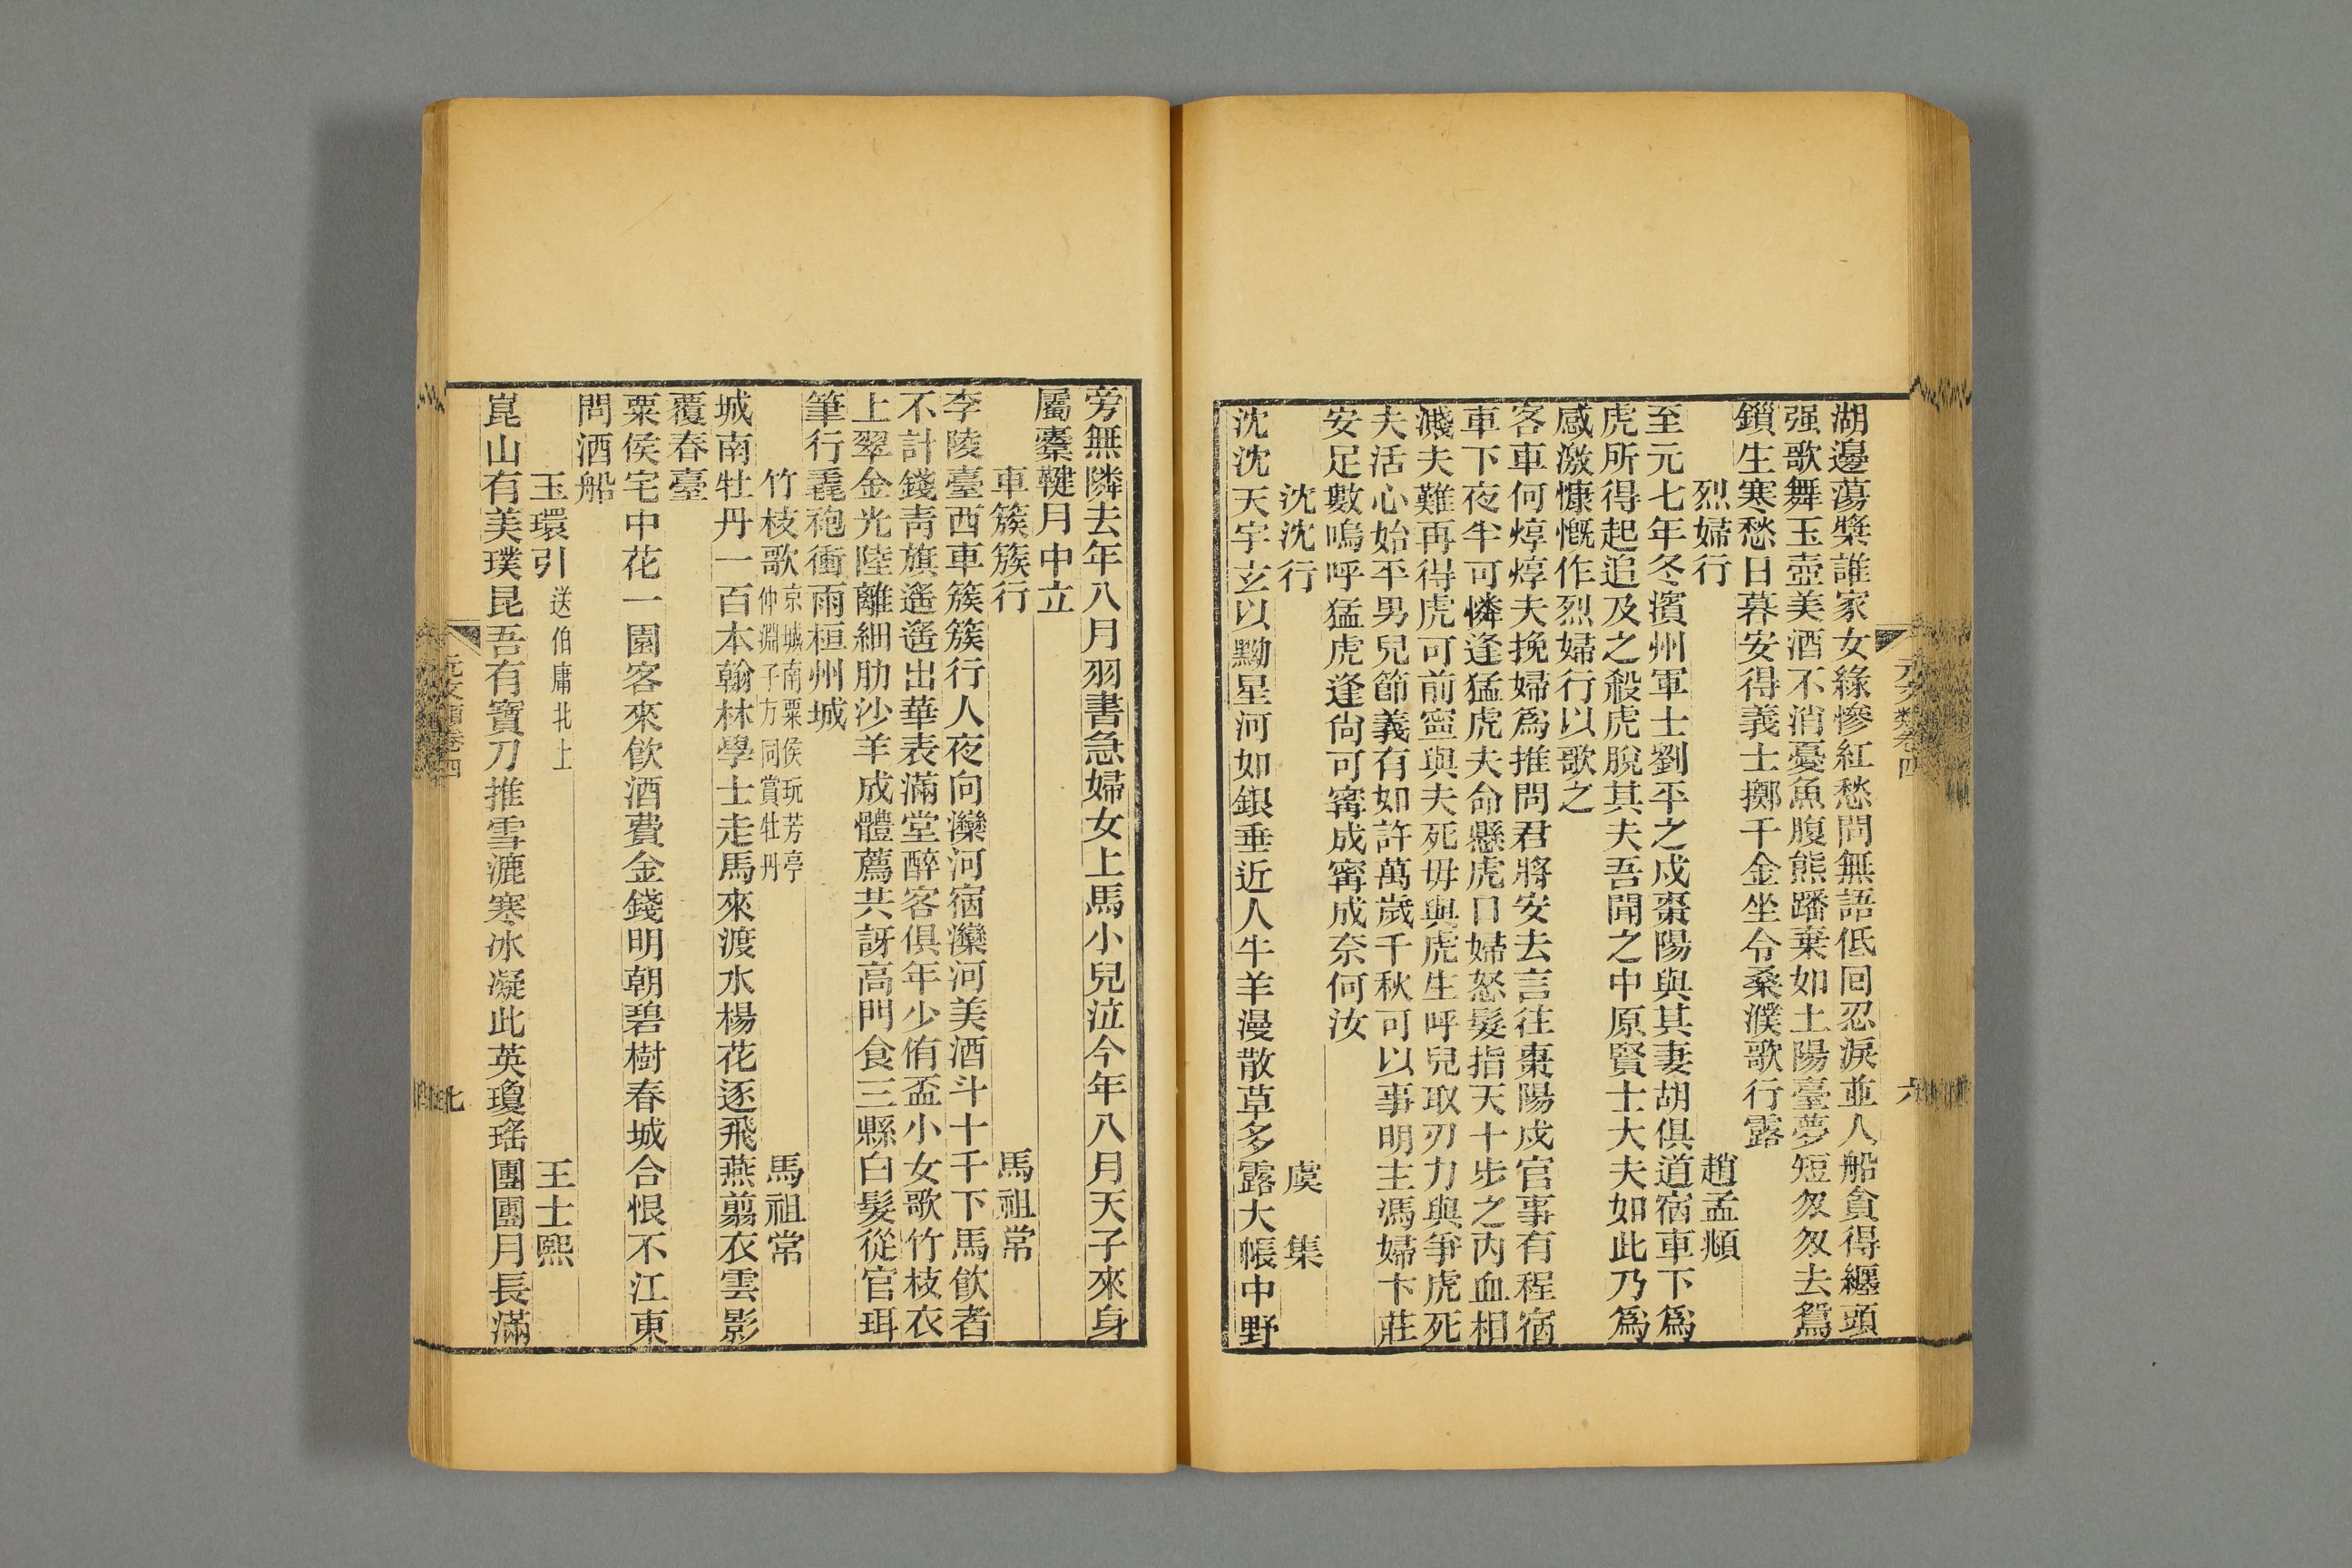 湖邊蕩槳誰家女綠慘紅愁問無語低回忍淚並人船貪得纏頭
强歌舞玉壺美酒不消憂魚腹熊蹯棄如土陽臺夢短匆匆去鴛
鎖生寒愁日暮安得義士擲千金坐令桑濮歌行露
烈婦行 趙孟頫
至元七年冬濱州軍士劉平之戍棗陽與其妻胡俱道宿車下爲
虎所得起追及之殺虎脫其夫吾聞之中原賢士大夫如此乃爲
感激慷慨作烈婦行以歌之
客車何焞焞夫挽婦爲推問君將安去言往棗陽戍官事有程宿
車下夜半可憐逢猛虎夫命懸虎口婦怒髮指天十步之內血相
濺夫難再得虎可前寧與夫死毋與虎生呼兒取刃力與爭虎死
夫活心始平男兒節義有如許萬歲千秋可以事明主馮婦卞莊
安足數嗚呼猛虎逢尙可寗成寗成奈何汝
沈沈行 虞集
沈沈天宇玄以黝星河如銀垂近人牛羊漫散草多露大帳中野
元文類卷四
六
旁無隣去年八月羽書急婦女上馬小兒泣今年八月天子來身
屬櫜鞬月中立
車簇簇行 馬祖常
李陵臺西車簇簇行人夜向灤河宿灤河美酒斗十千下馬飮者
不計錢靑旗遙遙出華表滿堂醉客俱年少侑盃小女歌竹枝衣
上翠金光陸離細肋沙羊成體薦共訝高門食三縣白髮從官珥
筆行毳袍衝雨桓州城
竹枝歌 京城南粟侯玩芳亭仲淵子方同賞牡丹 馬祖常
城南牡丹一百本翰林學士走馬來渡水楊花逐飛燕翦衣雲影
覆春臺
粟侯宅中花一園客來飮酒費金錢明朝碧樹春城合恨不江東
問酒船
玉環引 送伯庸北上 王士熙
崑山有美璞昆吾有寶刀推雪漉寒冰凝此英瓊瑤團團月長滿
元文類卷四
七